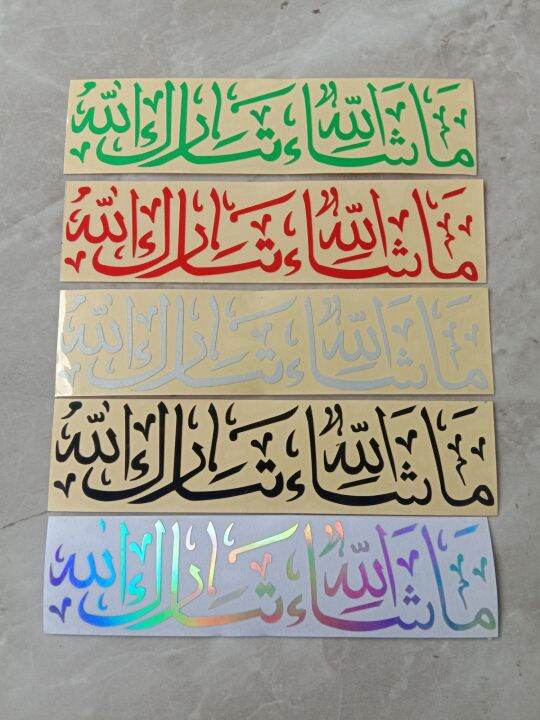 مَا شَاءَ اللّٰه تَبَارَكَ اللّٰه
مَا شَاءَ اللّٰه تَبَارَكَ اللّٰه
مَا شَاءَ اللّٰه تَبَارَكَ اللّٰه
مَا شَاءَ اللّٰه تَبَارَكَ اللّٰه
مَا شَاءَ اللّٰه تَبَارَكَ اللّٰه